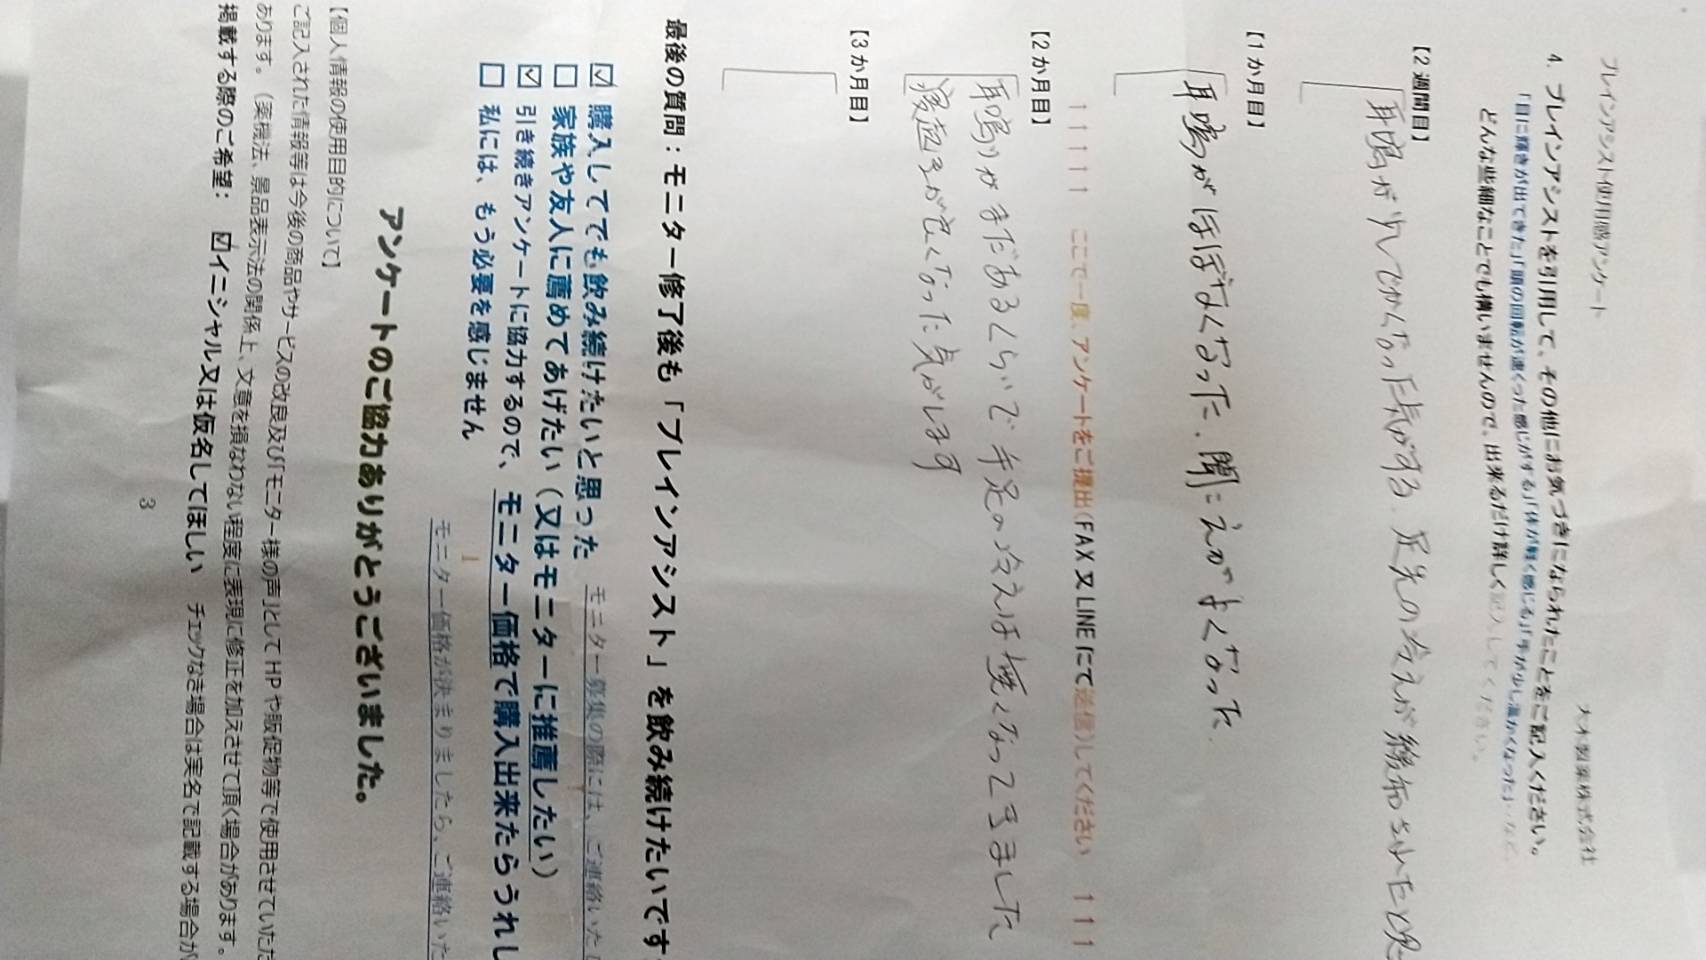 ブレインアシスト使用感アンケート
大木製薬株式会社
4. ブレインアシストを引用して、その他にお気づきになられたことをご記入ください。
「目に輝きが出てきた」「頭の回転が速くった感じがする」「体が軽く感じる」「手が少し温かくなった」・など、
どんな些細なことでも構いませんので、出来るだけ詳しく記入してください。
【2週間目】
耳鳴が少しでからなった気がする. 足先の冷えが緩和された
【1か月目】
耳鳴がほぼなくなった. 聞こえがよくなった.
↑↑↑↑↑ ここで一度、アンケートをご提出(FAX又LINEにて送信)してください ↑↑↑
【2か月目】
耳鳴りがまだあるくらいで手足の冷えは無くなってきました
寝起きが良くなった気がします
【3か月目】
最後の質問：モニター修了後も「ブレインアシスト」を飲み続けたいです
☑ 購入してでも飲み続けたいと思った
□ 家族や友人に薦めてあげたい（又はモニターに推薦したい） モニター募集の際には、ご連絡いた
☑ 引き続きアンケートに協力するので、モニター価格で購入出来たらうれし
□ 私には、もう必要を感じません
↓
モニター価格が決まりましたら、ご連絡いた
アンケートのご協力ありがとうございました。
【個人情報の使用目的について】
ご記入された情報等は今後の商品やサービスの改良及び「モニター様の声」としてHPや販促物等で使用させていただ
あります。（薬機法、景品表示法の関係上、文意を損なわない程度に表現に修正を加えさせて頂く場合があります。
掲載する際のご希望： ☑イニシャル又は仮名してほしい チェックなき場合は実名で記載する場合が
3